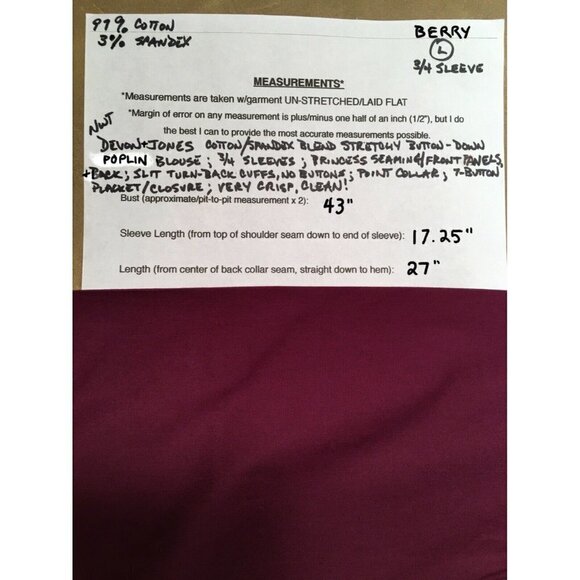 97% COTTON
3% SPANDEX
BERRY
L
3/4 SLEEVE
MEASUREMENTS*
*Measurements are taken w/garment UN-STRETCHED/LAID FLAT
*Margin of error on any measurement is plus/minus one half of an inch (1/2"), but I do
the best I can to provide the most accurate measurements possible.
NWT
DEVON+JONES COTTON/SPANDEX BLEND STRETCHY BUTTON-DOWN
POPLIN BLOUSE; 3/4 SLEEVES; PRINCESS SEAMING/FRONT PANELS,
+BACK; SLIT TURN-BACK CUFFS, NO BUTTONS; POINT COLLAR; 7-BUTTON
PLACKET/CLOSURE; VERY CRISP, CLEAN!
Bust (approximate/pit-to-pit measurement x 2): 43"
Sleeve Length (from top of shoulder seam down to end of sleeve): 17.25"
Length (from center of back collar seam, straight down to hem): 27"